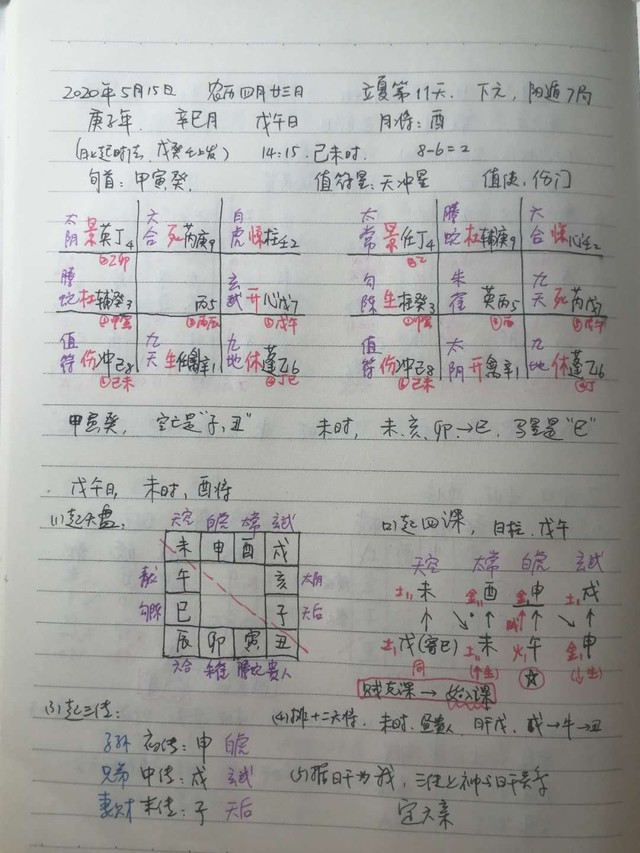 2020年5月15日 农历四月廿三日 立夏第11天. 下元, 阳遁7局
庚子年. 辛巳月 戊午日 月将: 酉
(日上起时法, 戊癸壬上发) 14:15. 己未时. 8-6=2
旬首: 甲寅癸. 值符星: 天冲星 值使: 伤门
太阴 景英丁4 六合 死芮庚9 白虎 惊柱壬2
②乙卯
螣蛇 杜辅癸3 丙5 玄武 开心戊7
①甲寅 ③丙辰 ⑤戊午
值符 伤冲己8 九天 生任禽辛1 九地 休蓬乙6
⑥己未 ④丁巳
太常 景任丁4 螣蛇 杜辅庚9 六合 惊心壬2
②乙
勾陈 生柱癸3 朱雀 英丙5 九天 死芮戊7
①甲寅 ③丙 ⑤戊午
值符 伤冲己8 太阴 开禽辛1 九地 休蓬乙6
⑥己未 ④丁
甲寅癸, 空亡是“子, 丑” 未时, 未、亥、卯→巳, 马星是“巳”
戊午日, 未时, 酉将
(1)起天盘, (2)起四课, 日柱: 戊午
天空 白虎 太常 玄武
未 申 酉 戌
青龙 午 亥 太阴
勾陈 巳 子 天后
辰 卯 寅 丑
六合 朱雀 螣蛇 贵人
天空 太常 白虎 玄武
土 未 金 酉 金 申 土 戌
↑ ↘ ↑ ↑ ↘ ↑
土 戊(寄巳) 土 未 火 午 金 申
同 (↑生) ☆ (↓生)
贼克课 → 始入课
(3)起三传: (4)排十二天将. 未时, 昼贵人 日干戊, 戊→牛→丑
子孙 初传: 申 白虎
兄弟 中传: 戌 玄武 (5)据日干为我, 三传上神与日干关系
妻财 末传: 子 天后 定六亲